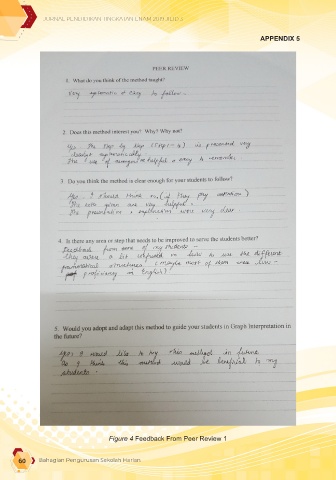 JURNAL PENDIDIKAN TINGKATAN ENAM 2021 JILID 3
APPENDIX 5
PEER REVIEW
1. What do you think of the method taught?
Very systematic & easy to follow.
2. Does this method interest you? Why? Why not?
Yes. The step by step (Step 1-4) is presented very
clearly & systematically.
The use of is helpful & easy to remember.
3. Do you think the method is clear enough for your students to follow?
Yes. I should think so. (if they pay attention)
The notes given are very helpful.
The presentation & explanation was very clear.
4. Is there any area or step that needs to be improved to serve the students better?
Feedback from some of my students -
they were a bit confused on how to use the different
structures. (Maybe most of them were low
proficiency in English)
5. Would you adopt and adapt this method to guide your students in Graph Interpretation in
the future?
Yes, I would like to try this method in future
as I think this method would be beneficial to my
students.
Figure 4 Feedback From Peer Review 1
60 Bahagian Pengurusan Sekolah Harian